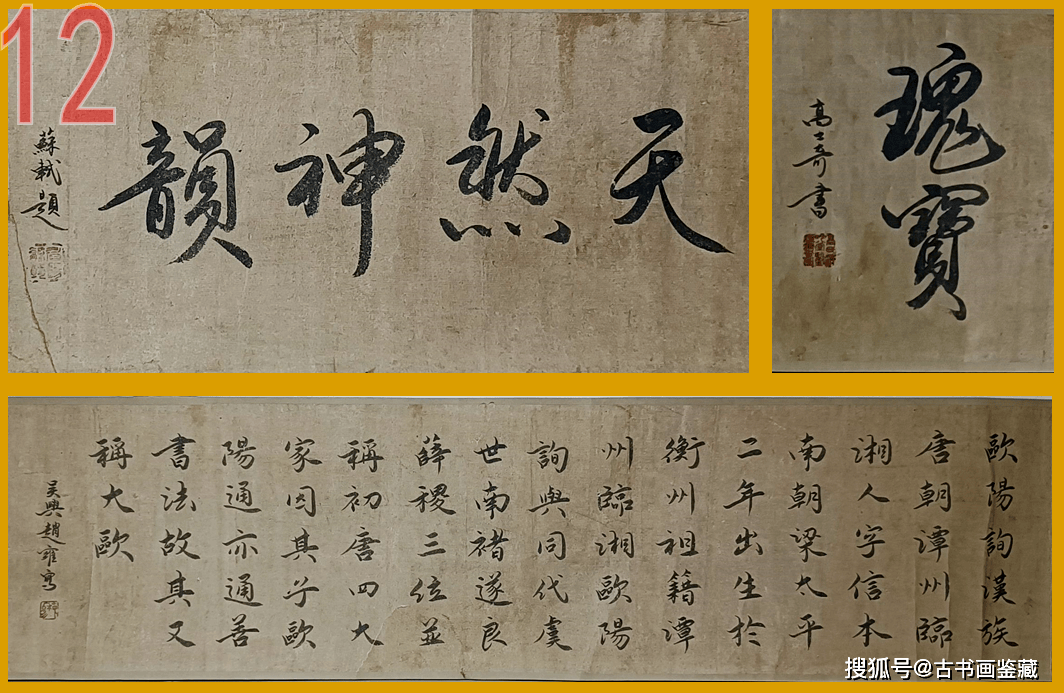 12
天然神韻
蘇軾題
瑰寶
高士奇書
歐陽詢漢族
唐朝潭州臨
湘人字信本
南朝梁太平
二年出生於
衡州祖籍潭
州臨湘歐陽
詢與同代虞
世南褚遂良
薛稷三位並
稱初唐四大
家因其子歐
陽通亦通善
書法故其又
稱大歐
吴興趙雍寫
搜狐号@古书画鉴藏